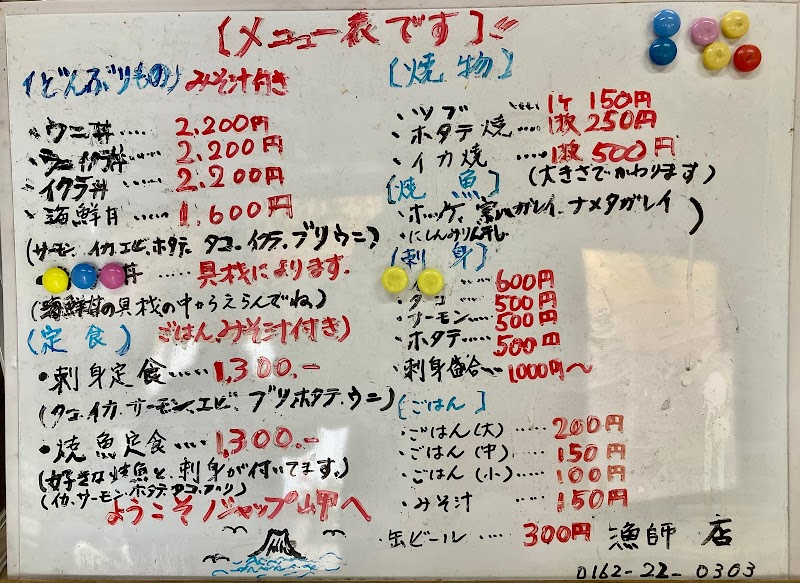 〔メニュー表です〕!!
(どんぶりもの)みそ汁付き
・ウニ丼‥‥ 2,200円
・ウニイクラ丼‥‥ 2,200円
・イクラ丼 2,200円
・海鮮丼‥‥ 1,600円
(サーモン、イカ、エビ、ホタテ、タコ、イクラ、ブリ、ウニ)
丼 ‥‥ 具材によります.
(海鮮丼の具材の中からえらんでね)
(定食) ごはん、みそ汁付き)
・刺身定食‥‥ 1,300.-
(タコ、イカ、サーモン、エビ、ブリ、ホタテ、ウニ)
・焼魚定食‥‥ 1,300.-
(好きな焼魚と、刺身が付いてます。)
(イカ、サーモン、ホタテ、タコ、ブリ)
ようこそノシャップ岬へ
〔焼物〕
・ツブ ‥‥ 1ケ 150円
・ホタテ焼‥‥ 1枚 250円
・イカ焼 ‥‥ 1枚 500円
(大きさでかわります)
〔焼 魚〕
・ホッケ、宗八ガレイ、ナメタガレイ
・にしんみりん干し )
〔刺 身〕
‥‥ 600円
・タコ ‥‥ 500円
・サーモン‥‥ 500円
・ホタテ‥‥ 500円
・刺身盛合‥‥ 1000円〜
〔ごはん〕
・ごはん(大)‥‥ 200円
・ごはん(中)‥‥ 150円
・ごはん(小)‥‥ 100円
・みそ汁 ‥‥ 150円
・缶ビール ‥‥ 300円
漁師 店
0162-22-0303